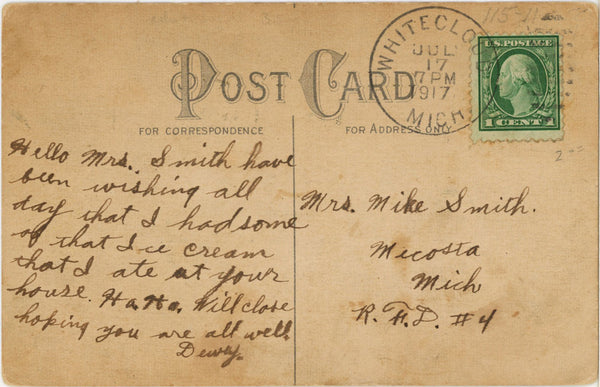 POST CARD
WHITECLOUD
JUL
17
7 PM
1917
MICH.
U.S. POSTAGE
1 CENT 1
FOR CORRESPONDENCE
FOR ADDRESS ONLY
Hello Mrs. Smith have
been wishing all
day that I had some
of that Ice cream
that I ate at your
house. Ha. Ha. Will close
hoping you are all well.
Dewy.
Mrs. Mike Smith.
Mecosta
Mich
R. F. D. #4